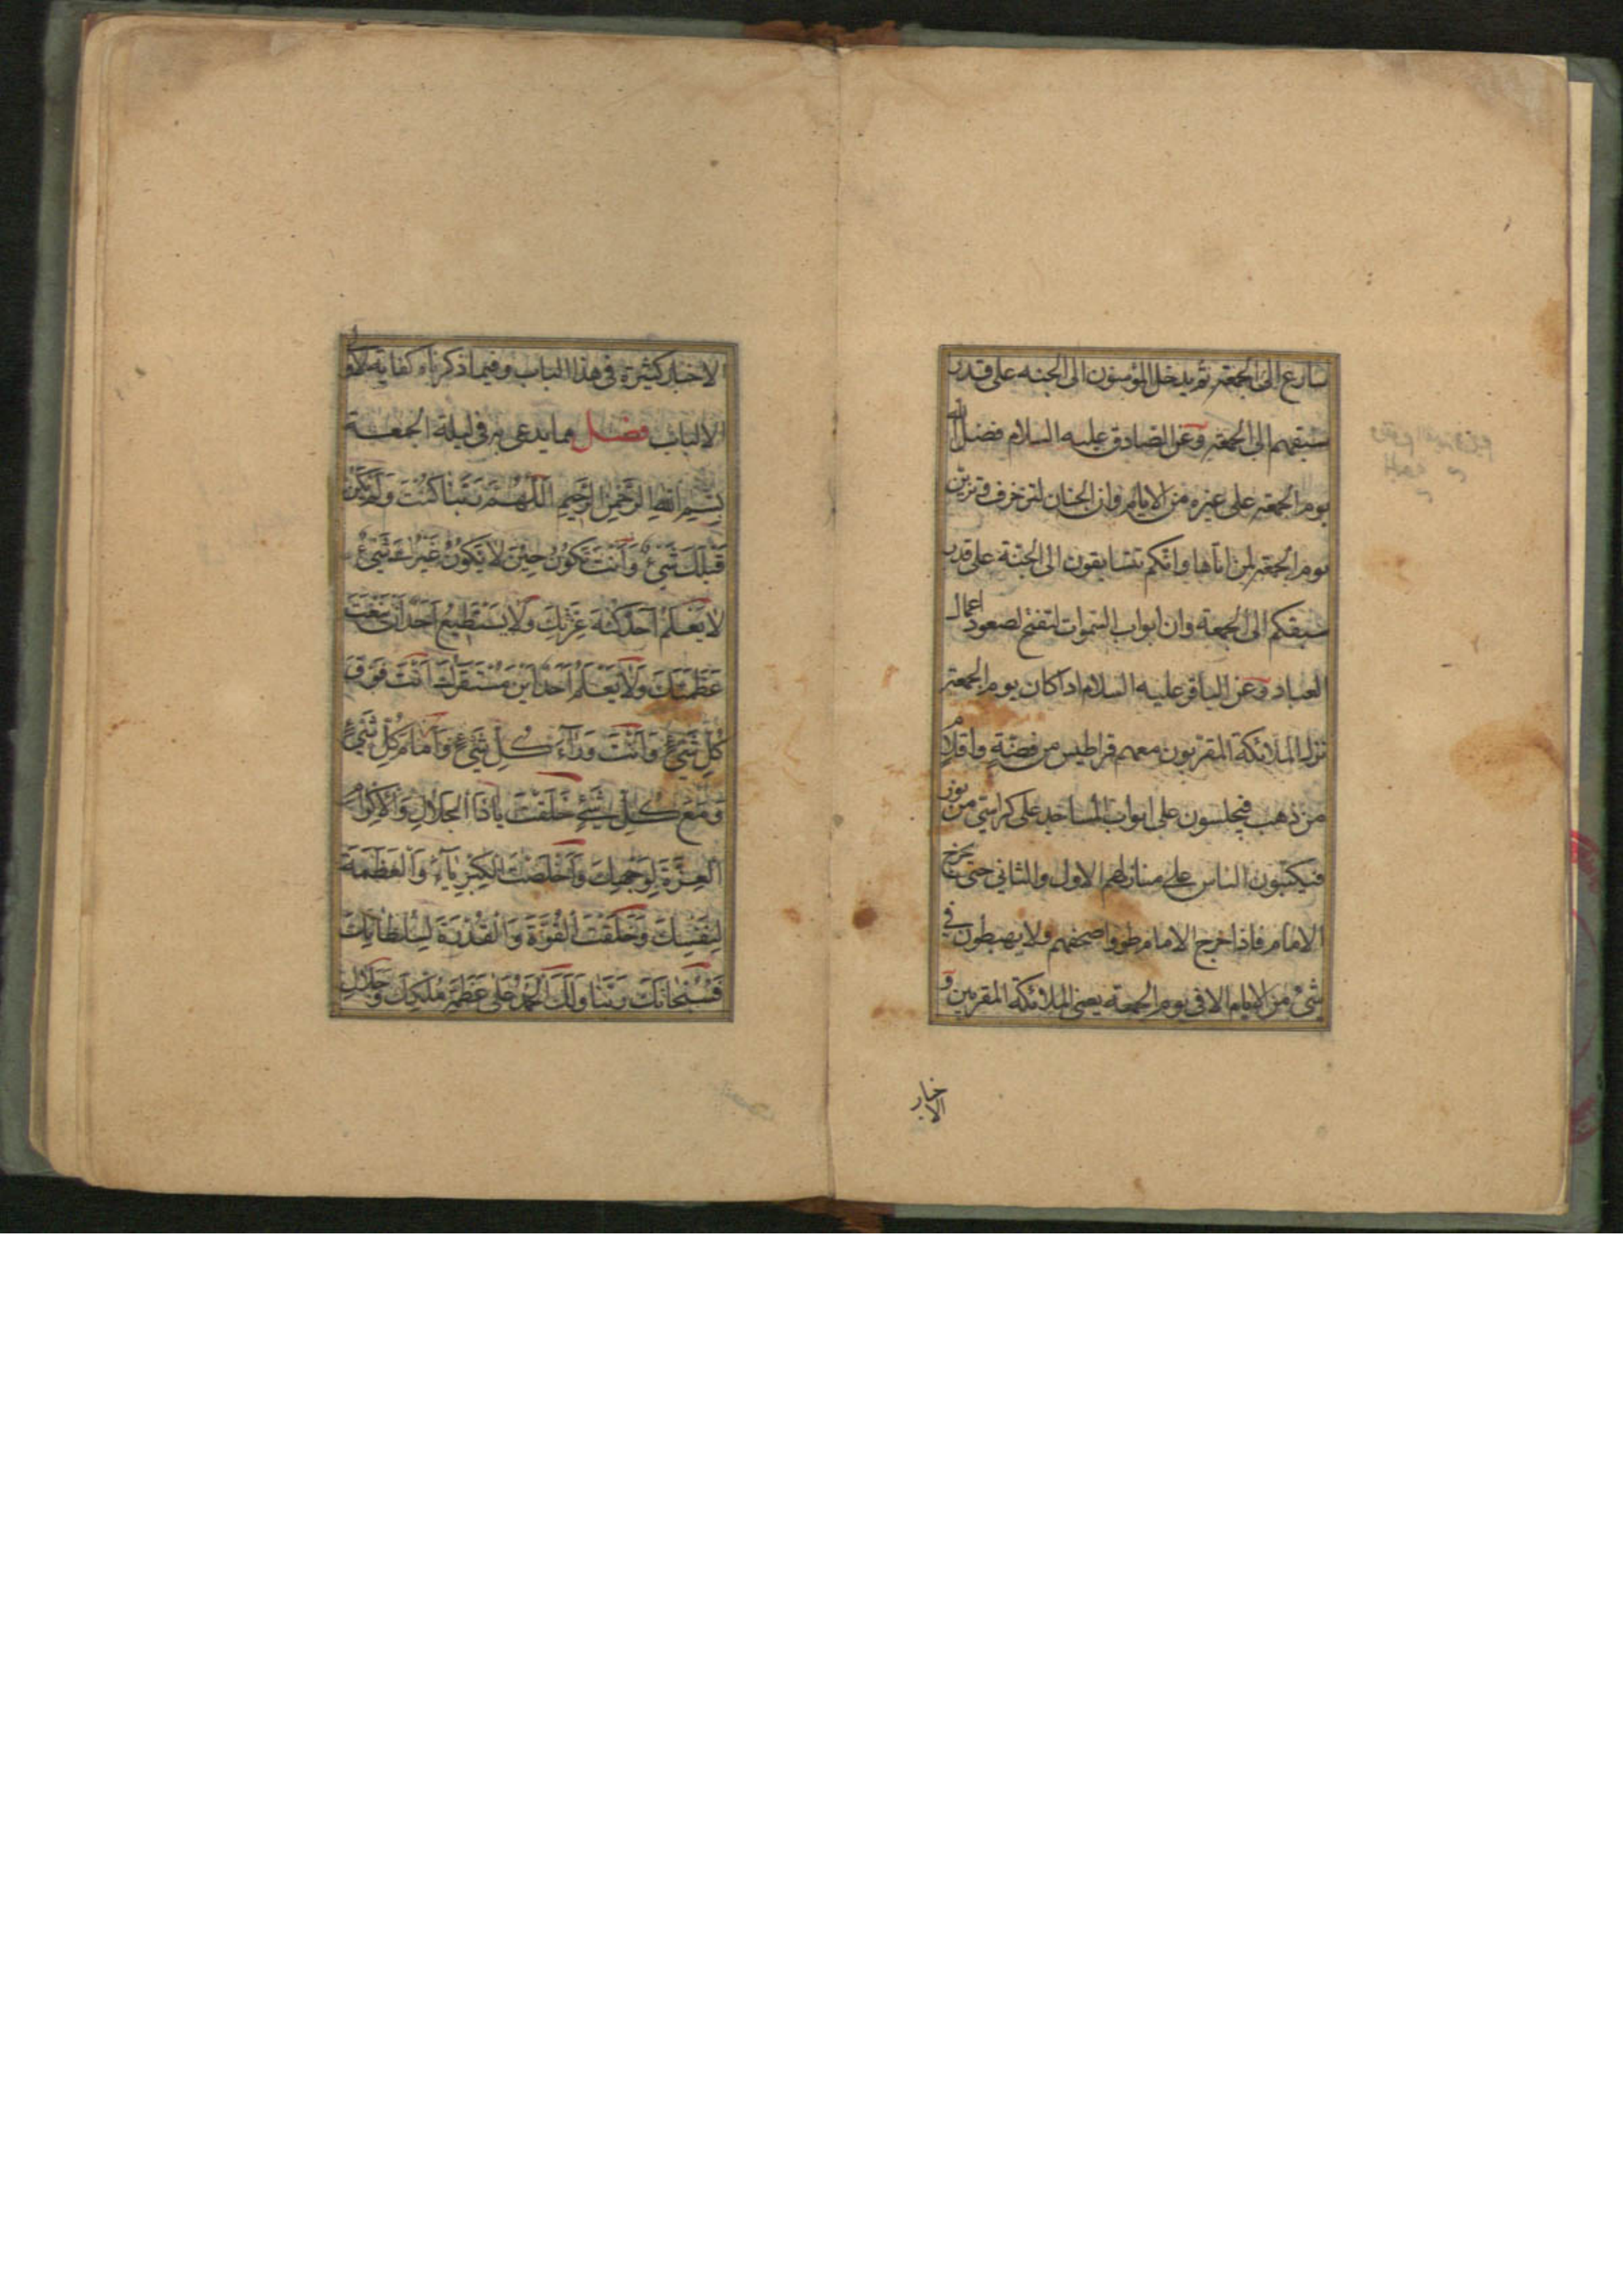 سارع الى الجمعة ثم يدخل المؤمنون الى الجنه على قدر
سبقهم الى الجمعة وعن الصادق عليه السلام فضل الله
يوم الجمعة على غيره من الايام وان الجنان لتزخرف وتزين
يوم الجمعة لمن اتاها وانكم تتسابقون الى الجنة على قدر
سبقكم الى الجمعة وان ابواب السموات لتفتح لصعود اعمال
العباد وعن الباقر عليه السلام اذا كان يوم الجمعة
نزل الملائكة المقربون معهم قراطيس من فضة واقلام
من ذهب فيجلسون على ابواب المساجد على كراسي من نور
فيكتبون الناس على منازلهم الاول والثاني حتى يخرج
الامام فاذا خرج الامام طووا صحفهم ولا يهبطون في
شئ من الايام الا في يوم الجمعة يعني الملائكة المقربين و
الاخبار
الاخبار كثيرة في هذا الباب وفيما ذكرناه كفاية لاولي
الالباب فصل مما يدعى به في ليلة الجمعة
بِسْمِ اللهِ الرَّحْمٰنِ الرَّحِيمِ اَللّٰهُمَّ رَبَّنَا كُنْتَ وَلَمْ يَكُنْ
قَبْلَكَ شَيْءٌ وَاَنْتَ تَكُونُ حِينَ لَا يَكُونُ غَيْرَكَ شَيْءٌ
لَا يَعْلَمُ اَحَدٌ كُنْهَ عِزَّتِكَ وَلَا يَسْتَطِيعُ اَحَدٌ اَنْ يَنْعَتَ
عَظَمَتَكَ وَلَا يَعْلَمُ اَحَدٌ اَيْنَ مُسْتَقَرُّكَ اَنْتَ فَوْقَ
كُلِّ شَيْءٍ وَاَنْتَ وَرَاءَ كُلِّ شَيْءٍ وَاَمَامَ كُلِّ شَيْءٍ
وَمَعَ كُلِّ شَيْءٍ خَلَقْتَ يَا ذَا الْجَلَالِ وَالْاِكْرَامِ
الْعِزَّةَ لِوَجْهِكَ وَاَخْلَصْتَ الْكِبْرِيَاءَ وَالْعَظَمَةَ
لِنَفْسِكَ وَخَلَقْتَ الْقُوَّةَ وَالْقُدْرَةَ لِسُلْطَانِكَ
فَسُبْحَانَكَ رَبَّنَا وَلَكَ الْحَمْدُ عَلَى عَظَمَةِ مُلْكِكَ وَجَلَالِ